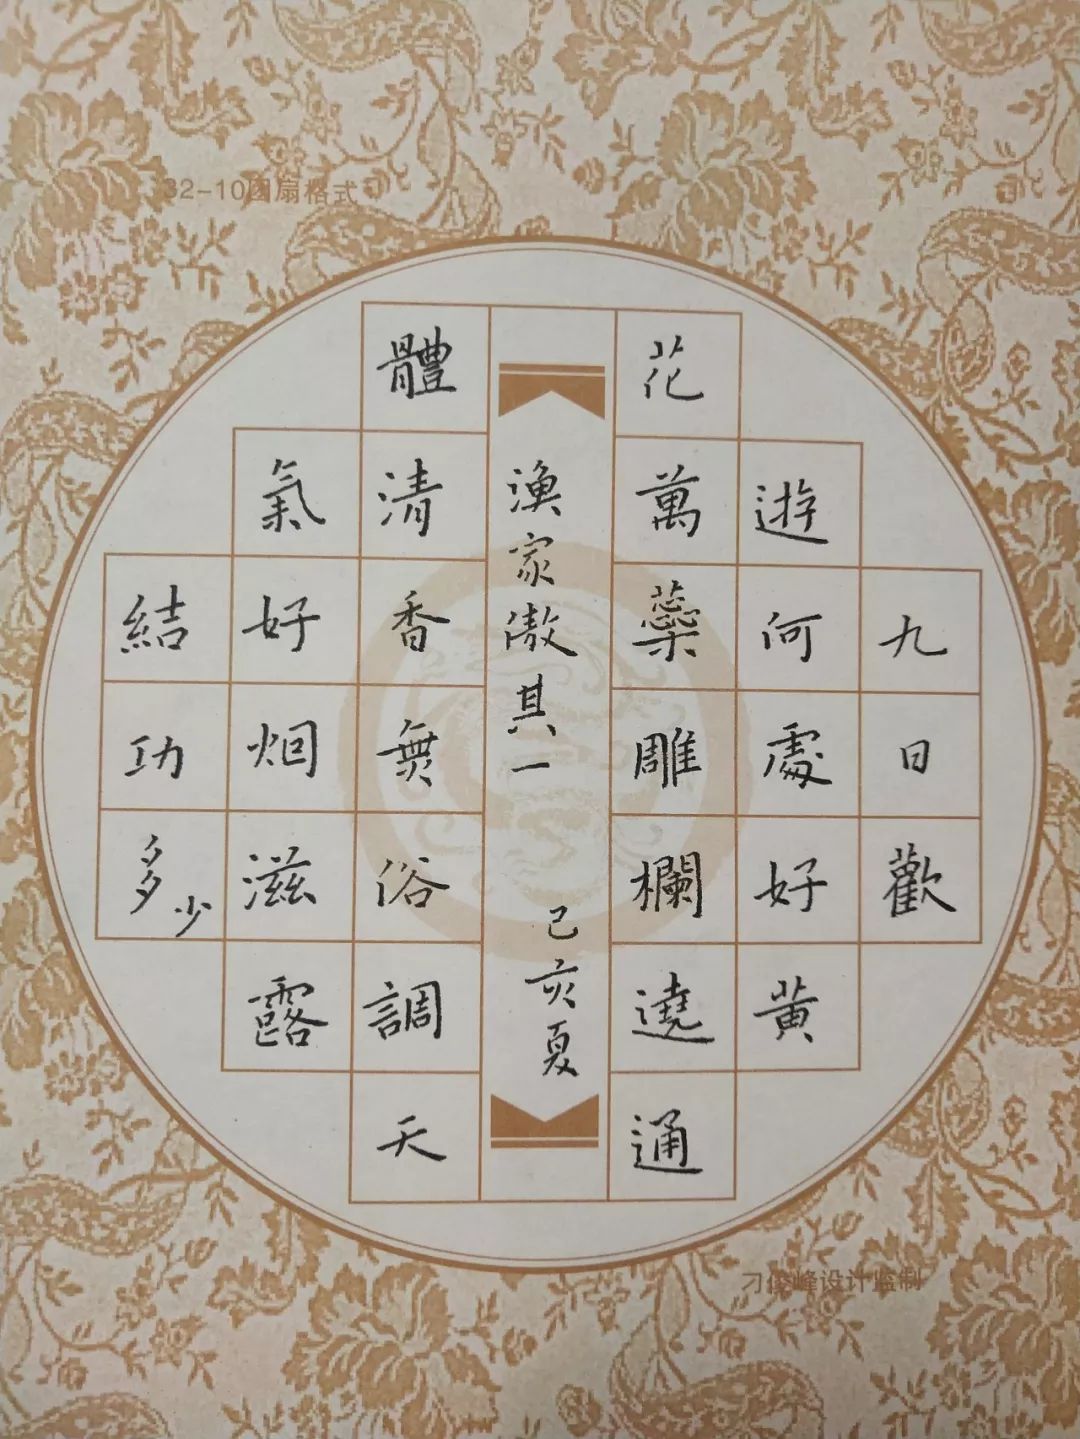 32-10团扇格式
九日歡
遊何處好黃
花萬蘂雕欄遶通
漁家傲其一
己亥夏
體清香無俗調天
氣好烟滋露
結功多少
刁俊峰设计监制